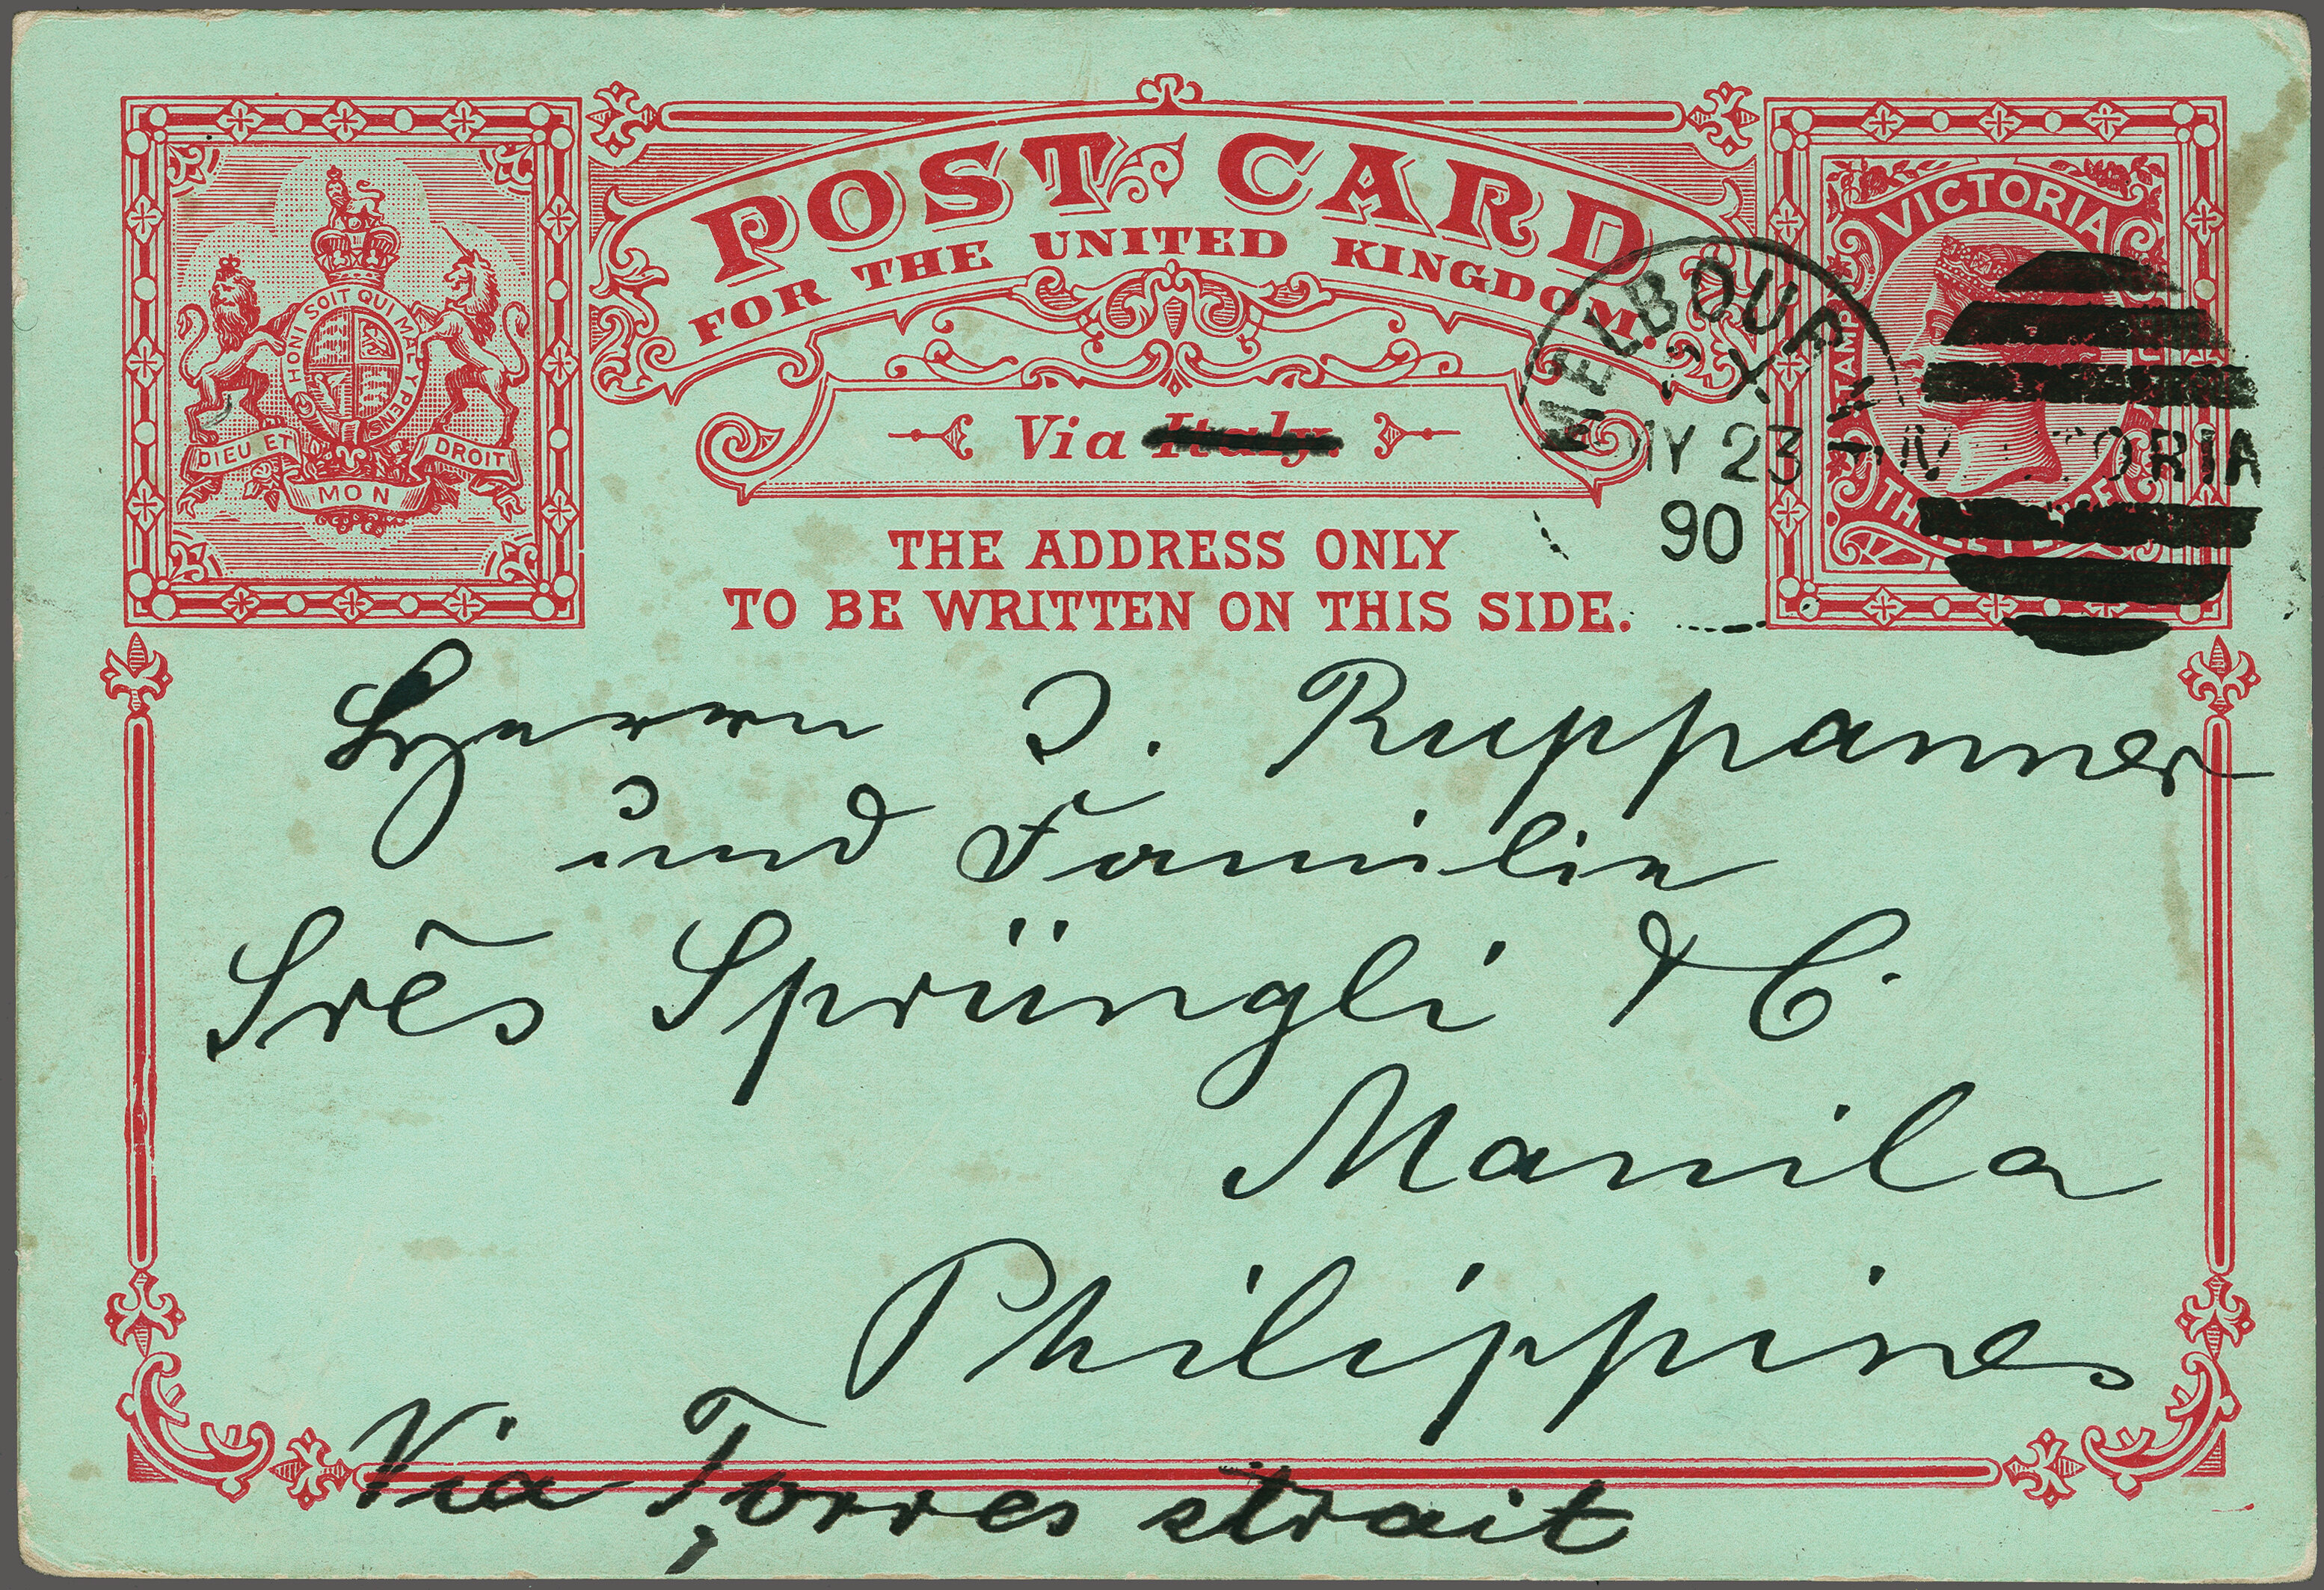 POST CARD
FOR THE UNITED KINGDOM.
HONI SOIT QUI MAL Y PENSE
DIEU ET
MON
DROIT
Via Italy.
THE ADDRESS ONLY
TO BE WRITTEN ON THIS SIDE.
VICTORIA
STAMP
MELBOURN
MY 23
90
TORIA
Herrn J. Ruppanner
und Familie
Srēs Sprüngli & C.
Manila
Philippines
Via Torres strait